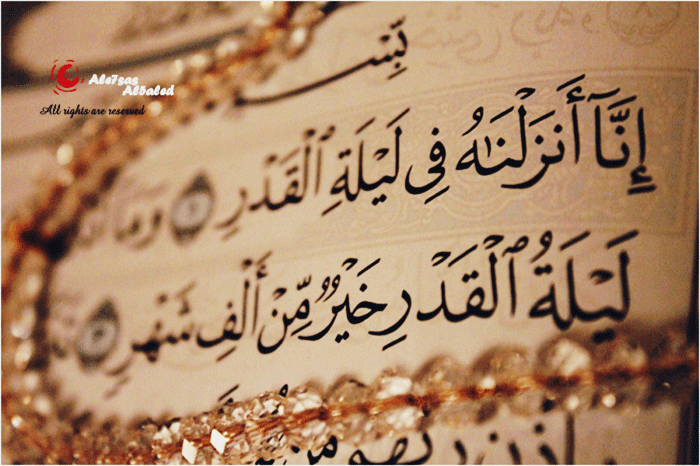 Ale7sas
Al5aled
All rights are reserved
بِّسْ
إِنَّآ أَنزَلْنَٰهُ فِى لَيْلَةِ ٱلْقَدْرِ ١ وَمَآ
لَيْلَةُ ٱلْقَدْرِ خَيْرٌ مِّنْ أَلْفِ شَهْرٍ ٣